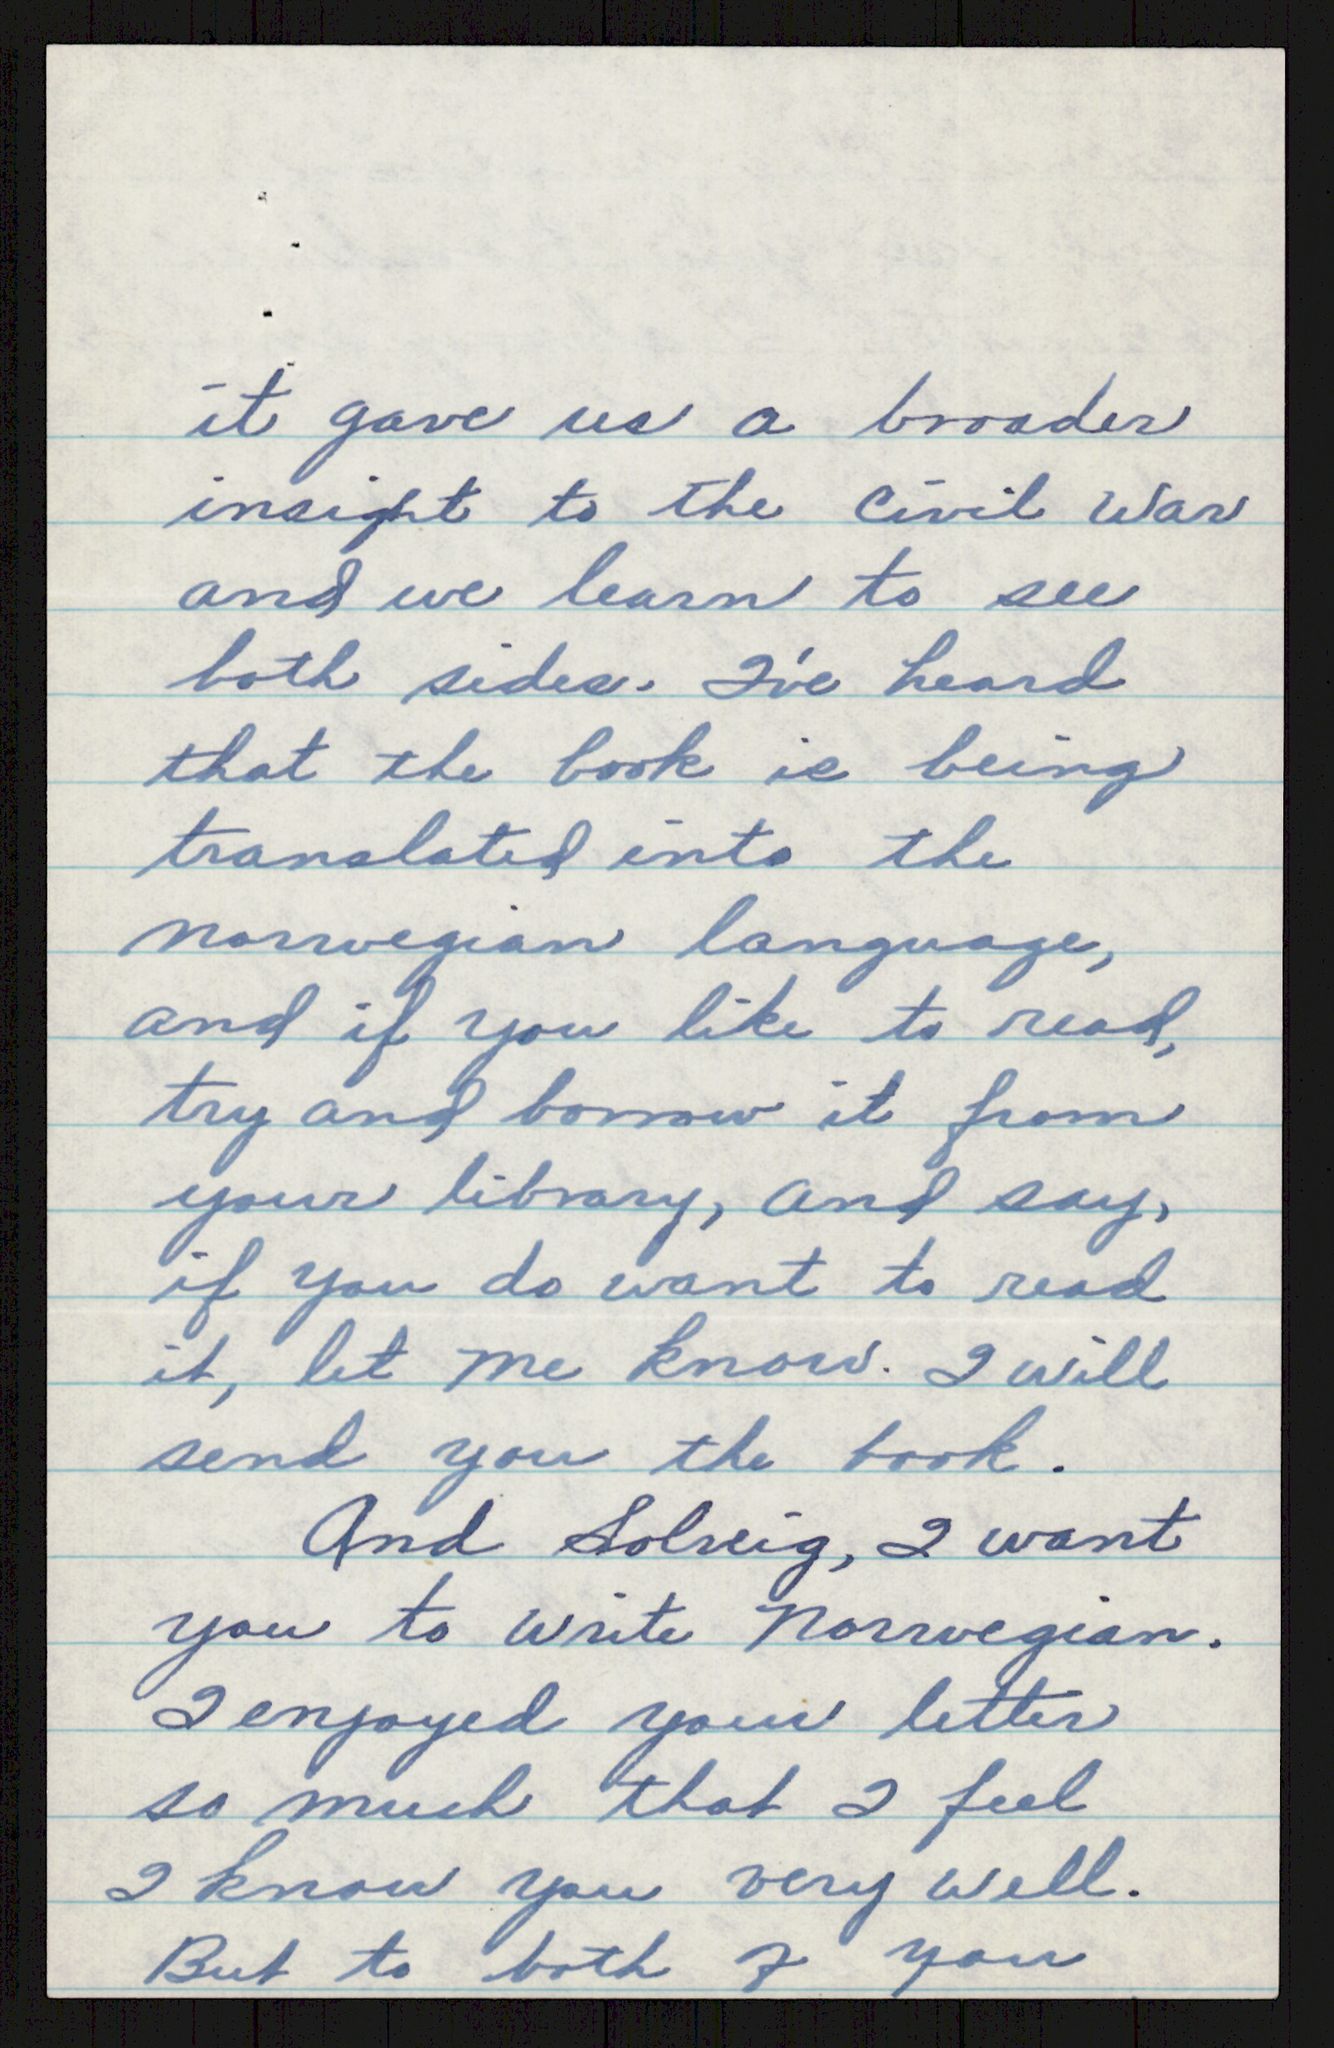 it gave us a broader
insight to the Civil War
and we learn to see
both sides. I've heard
that the book is being
translated into the
Norwegian language,
and if you like to read,
try and borrow it from
your library, and say,
if you do want to read
it, let me know. I will
send you the book.
And Solveig, I want
you to write Norwegian.
I enjoyed your letter
so much that I feel
I know you very well.
But to both of you